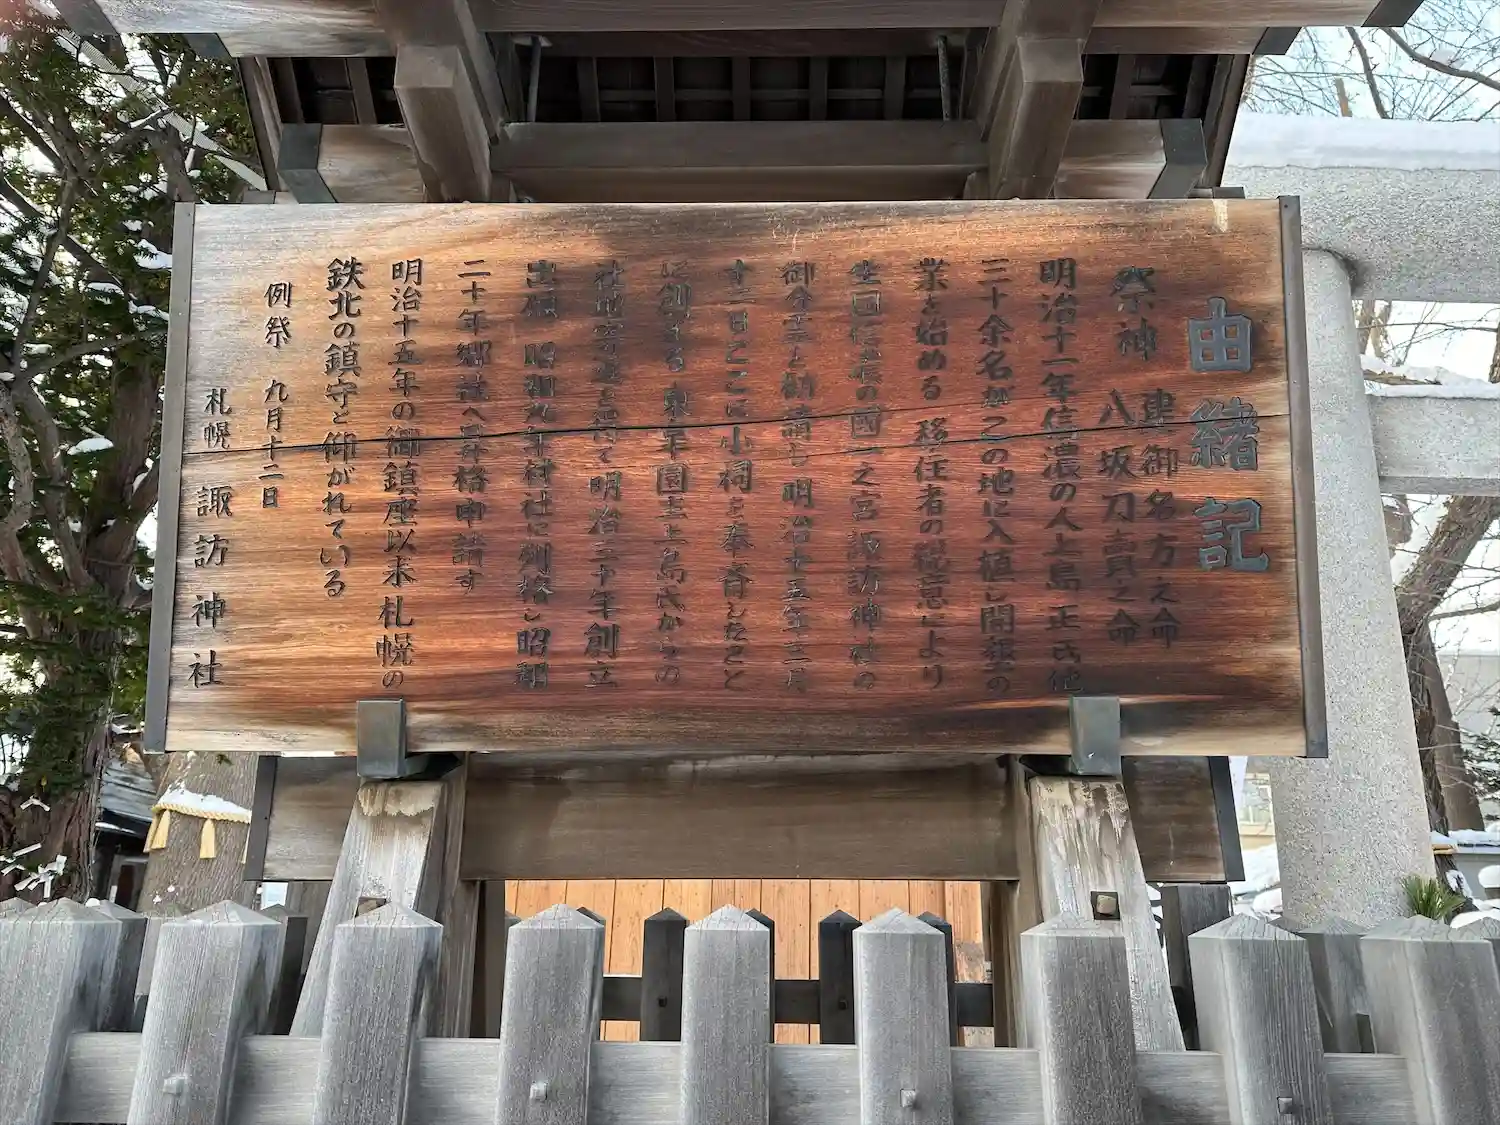 由緒記
祭神 建御名方之命
八坂刀売之命
明治十一年信濃の人上島 正氏他
三十余名がこの地に入植し開墾の
業を始める 移住者の観意により
生国信濃の国一之宮諏訪神社の
御分霊を勧請し明治十五年三月
十二日ここに小祠を奉斎したこと
に創まる 東年園主上島氏からの
社地寄進を得て明治三十年創立
出願 昭和九年村社に列格し昭和
二十年郷社へ昇格申請す
明治十五年の御鎮座以来札幌の
鉄北の鎮守と仰がれている
例祭 九月十二日
札幌 諏訪神社